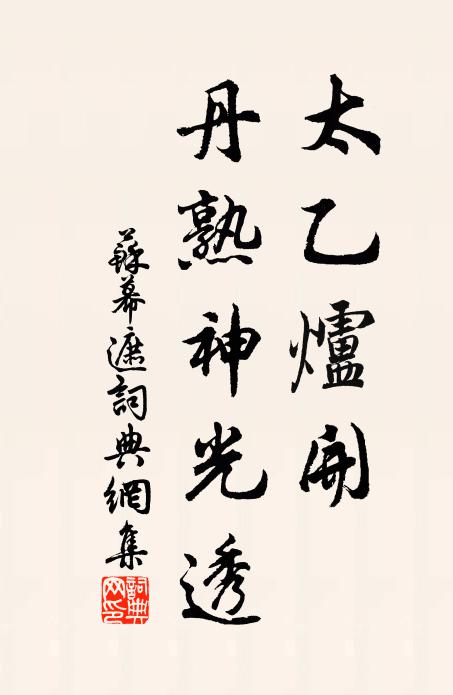 太乙爐開
丹熟神光透
蘇幕遮詞典網集
詞典網印